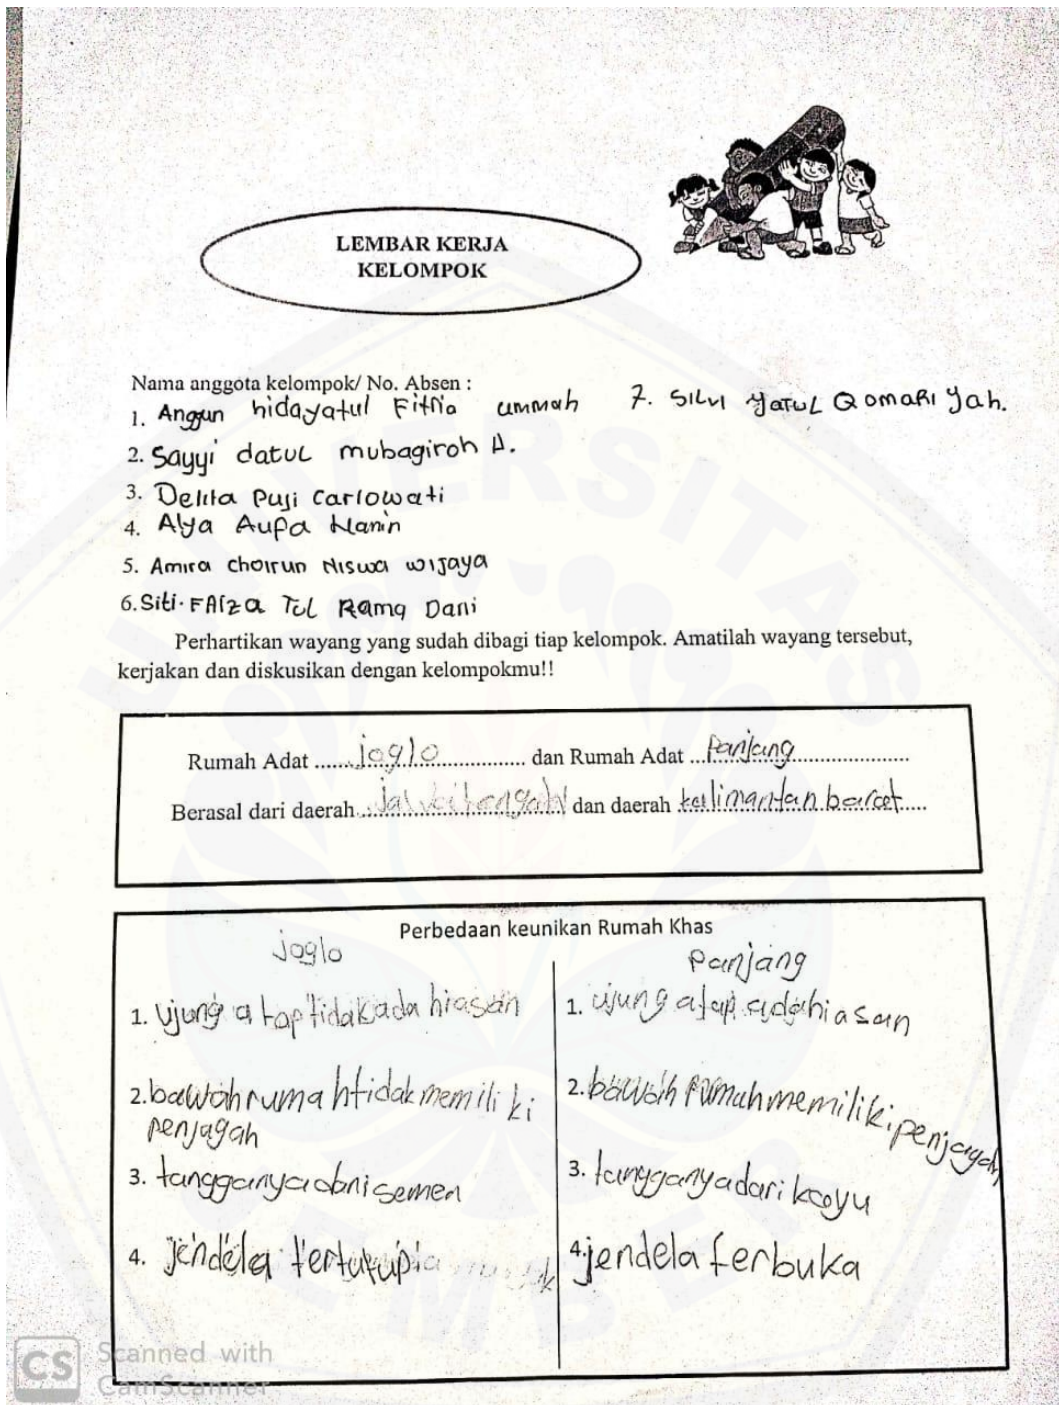 LEMBAR KERJA
KELOMPOK
Nama anggota kelompok/ No. Absen :
1. Anggun hidayatul Fitria ummah
7. Silvi yatul Qomari yah.
2. Sayyi datul mubagiroh A.
3. Delita Puji Carlowati
4. Alya Aupa Hanin
5. Amira choirun Niswa wijaya
6. Siti. FAIza Tul Rama Dani
Perhartikan wayang yang sudah dibagi tiap kelompok. Amatilah wayang tersebut,
kerjakan dan diskusikan dengan kelompokmu!!
Rumah Adat joglo dan Rumah Adat Panjang
Berasal dari daerah Jawa tengah dan daerah kalimantan barat
Perbedaan keunikan Rumah Khas
joglo
1. Ujung atap tidak ada hiasan
2. bawah rumah tidak memiliki
penjagah
3. tangganya semen
4. jendela tertutup
Panjang
1. ujung atap ada hiasan
2. bawah rumah memiliki penjagah
3. tangganya dari kayu
4. jendela terbuka
UNIVERSITAS
JEMBER
CS Scanned with
CamScanner